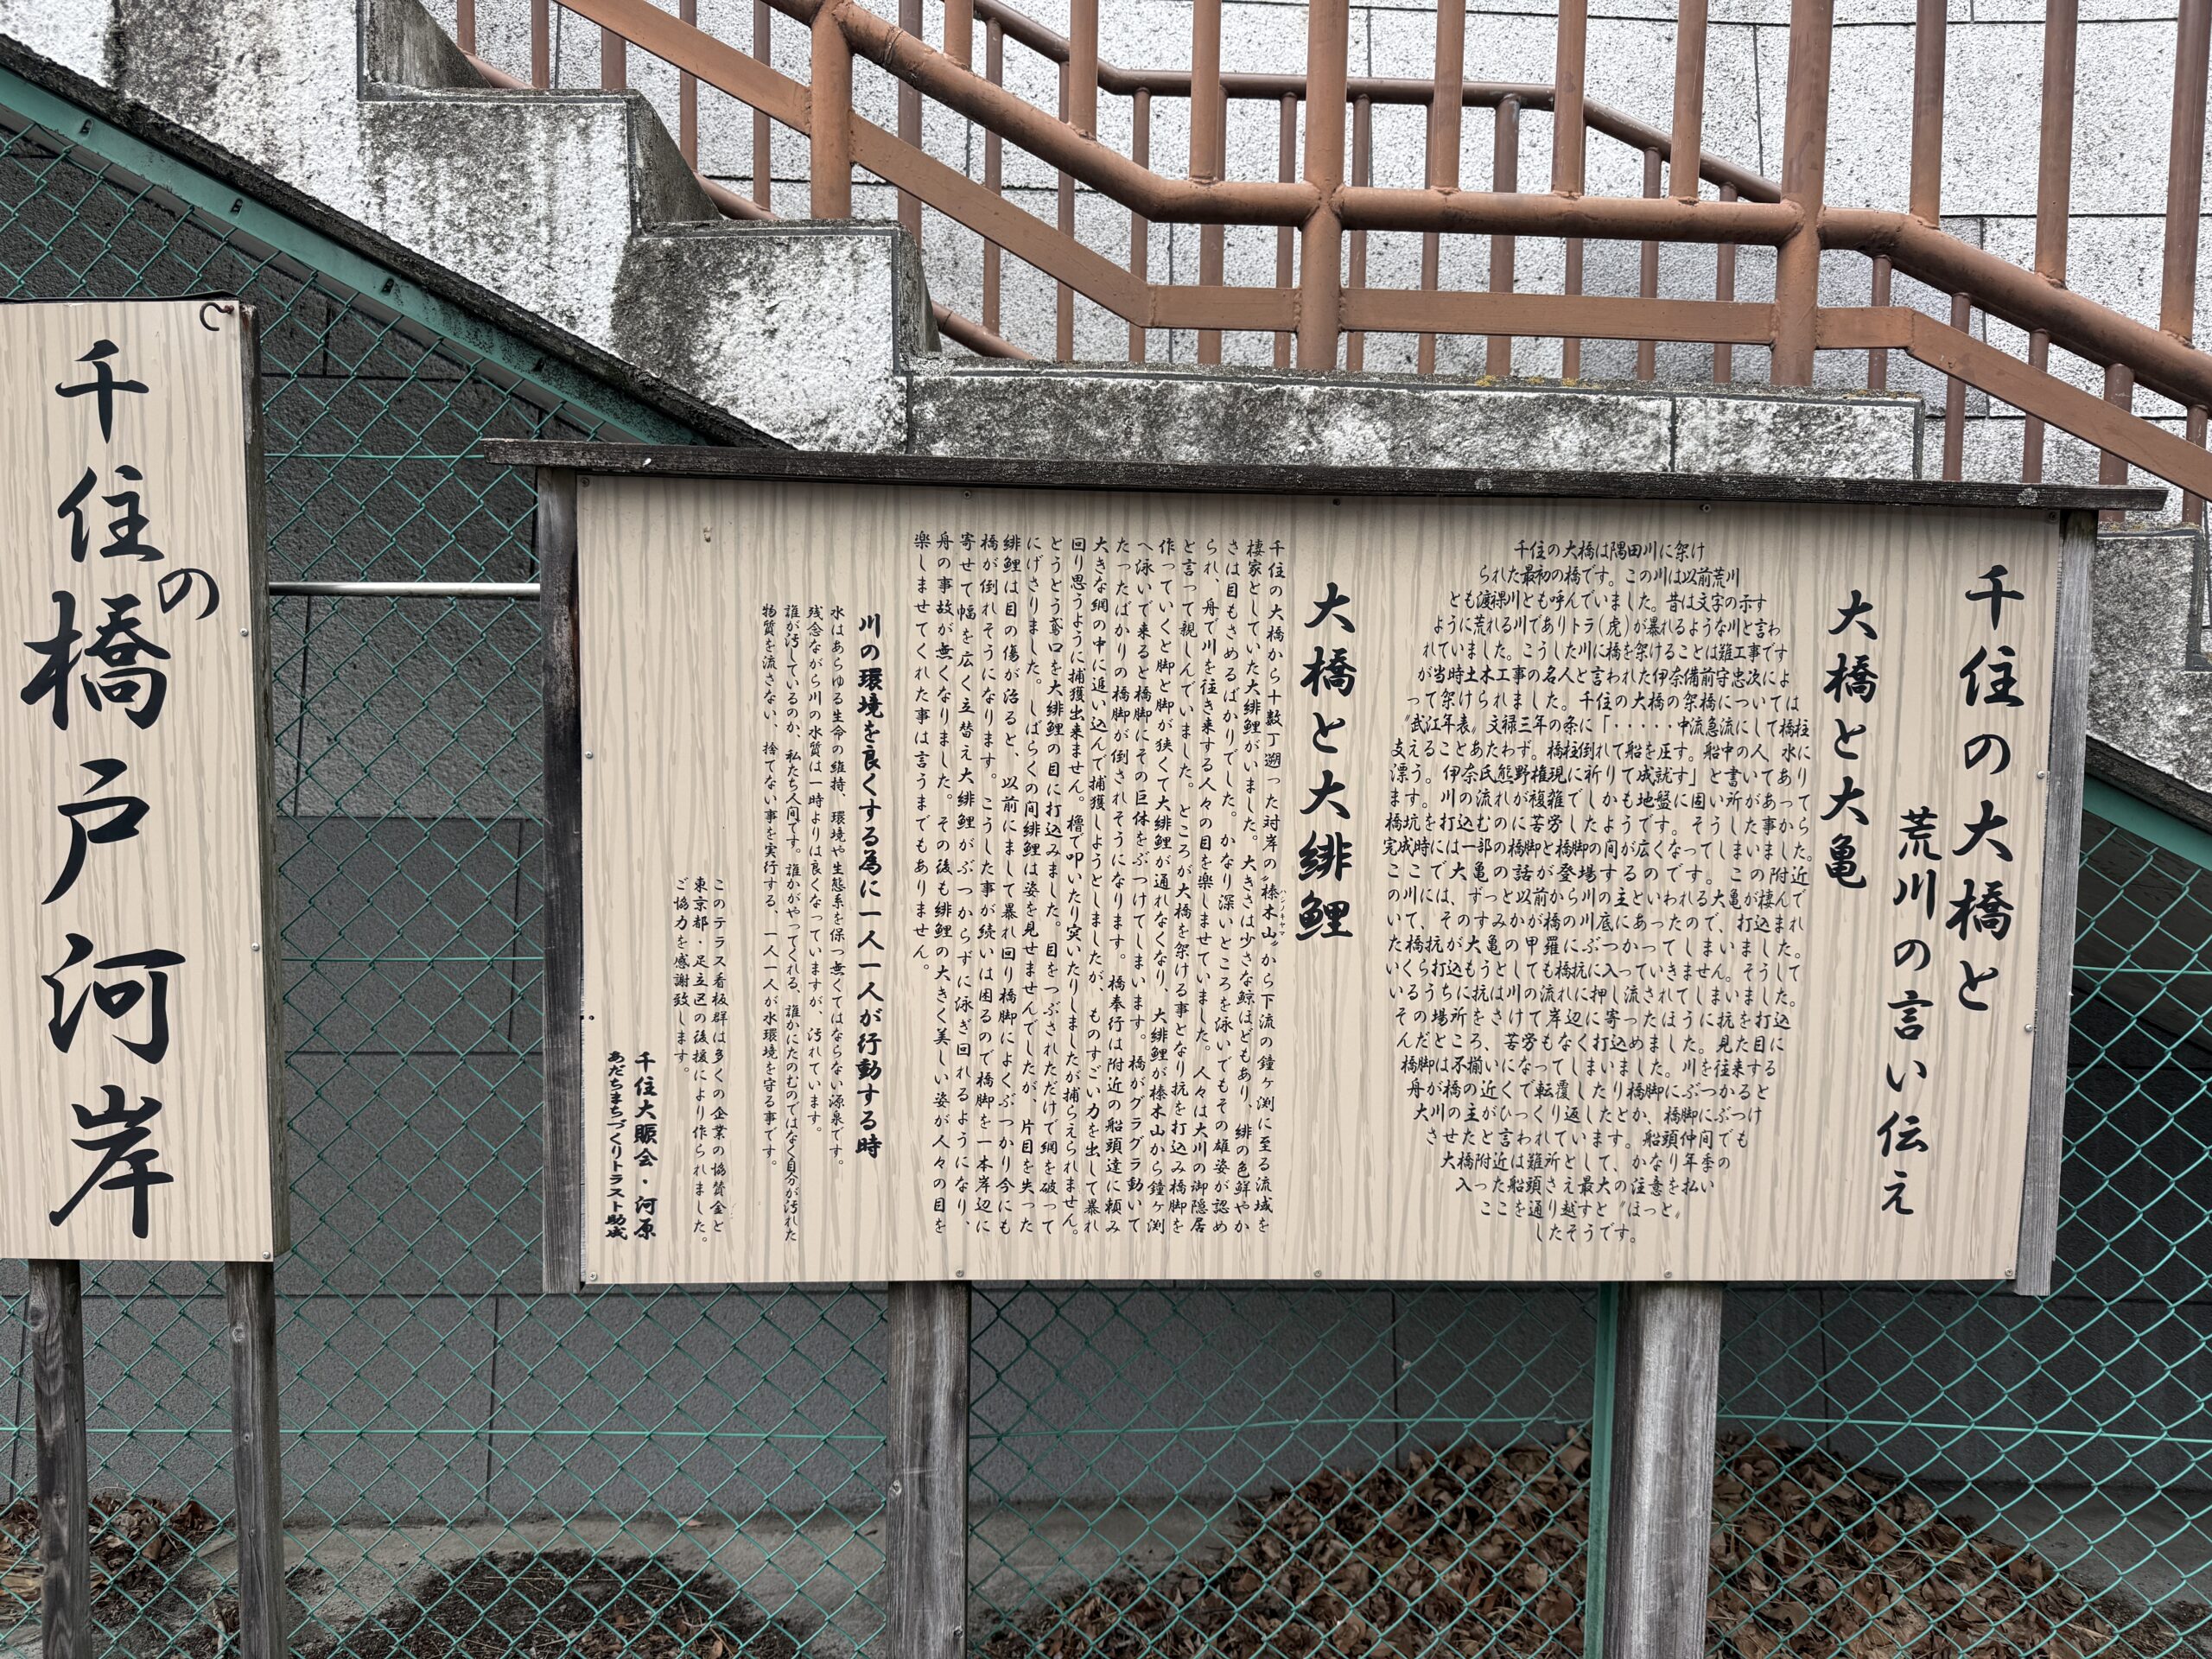 千住の
橋戸河岸
千住の大橋と
荒川の言い伝え
大橋と大亀
千住の大橋は隅田川に架け
られた最初の橋です。この川は以前荒川
とも渡裸川とも呼んでいました。昔は文字の示す
ように荒れる川でありトラ(虎)が暴れるような川と言わ
れていました。こうした川に橋を架けることは難工事です
が当時土木工事の名人と言われた伊奈備前守忠次によ
って架けられました。千住の大橋の架橋については
〝武江年表〟文禄三年の条に「・・・・・中流急流にして橋柱
支えることあたわず。橋柱倒れて船を圧す。船中の人、水に
漂う。伊奈氏熊野権現に祈りて成就す」と書いてあり
ます。川の流れが複雑でしかも地盤に固い所があって
橋坑を打込むのに苦労したようです。そうした事から
完成時には一部の橋脚と橋脚の間が広くなってしまいました。
ここで大亀の話が登場するのです。この附近
の川には、ずっと以前から川の主といわれる大亀が棲んで
いて、そのすみかが橋の川底にあったので、打込まれ
た橋抗が大亀の甲羅にぶつかってしまいました。
いくら打込もうとしても橋抗に入っていきません。そうして
いるうちに抗は川の流れに押し流されてしまいました。
その場所をさけて岸辺に寄ったほうに抗を打込
んだところ、苦労もなく打込めました。見た目に
橋脚は不揃いになってしまいました。川を往来する
舟が橋の近くで転覆したり橋脚にぶつかると
大川の主がひっくり返したとか、橋脚にぶつけ
させたと言われています。船頭仲間でも
大橋附近は難所として、かなり年季の
入った船頭さえ最大の注意を払い
ここを通り越すと〝ほっと〟
したそうです。
大橋と大緋鯉
千住の大橋から十数丁遡った対岸の〝榛木山〟から下流の鐘ヶ渕に至る流域を
ハンノキヤマ
棲家としていた大緋鯉がいました。大きさは少さな鯨ほどもあり、緋の色鮮やか
さは目もさめるばかりでした。かなり深いところを泳いでもその雄姿が認め
られ、舟で川を往き来する人々の目を楽しませていました。人々は大川の御隠居
と言って親しんでいました。ところが大橋を架ける事となり抗を打込み橋脚を
作っていくと脚と脚が狭くて大緋鯉が通れなくなり、大緋鯉が榛木山から鐘ヶ渕
へ泳いで来ると橋脚にその巨体をぶつけてしまいます。橋がグラグラ動いて
たったばかりの橋脚が倒されそうになります。橋奉行は附近の船頭達に頼み
大きな網の中に追い込んで捕獲しようとしましたが、ものすごい力を出して暴れ
回り思うように捕獲出来ません。櫓で叩いたり突いたりしましたが捕らえられません。
とうとう鳶口を大緋鯉の目に打込みました。目をつぶされただけで網を破って
にげさりました。しばらくの間緋鯉は姿を見せませんでしたが、片目を失った
緋鯉は目の傷が治ると、以前にまして暴れ回り橋脚によくぶつかり今にも
橋が倒れそうになります。こうした事が続いは困るので橋脚を一本岸辺に
寄せて幅を広く立替え大緋鯉がぶつからずに泳ぎ回れるようになり、
舟の事故が無くなりました。その後も緋鯉の大きく美しい姿が人々の目を
楽しませてくれた事は言うまでもありません。
川の環境を良くする為に一人一人が行動する時
水はあらゆる生命の維持、環境や生態系を保つ無くてはならない源泉です。
残念ながら川の水質は一時よりは良くなっていますが、汚れています。
誰が汚しているのか、私たち人間です。誰かがやってくれる、誰かにたのむのではなく自分が汚れた
物質を流さない、捨てない事を実行する、一人一人が水環境を守る事です。
このテラス看板群は多くの企業の協賛金と
東京都・足立区の後援により作られました。
ご協力を感謝致します。
千住大賑会・河原
あだちまちづくりトラスト助成